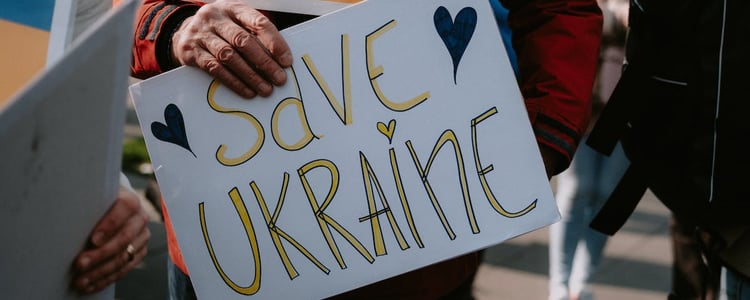 Save
UKRAINE